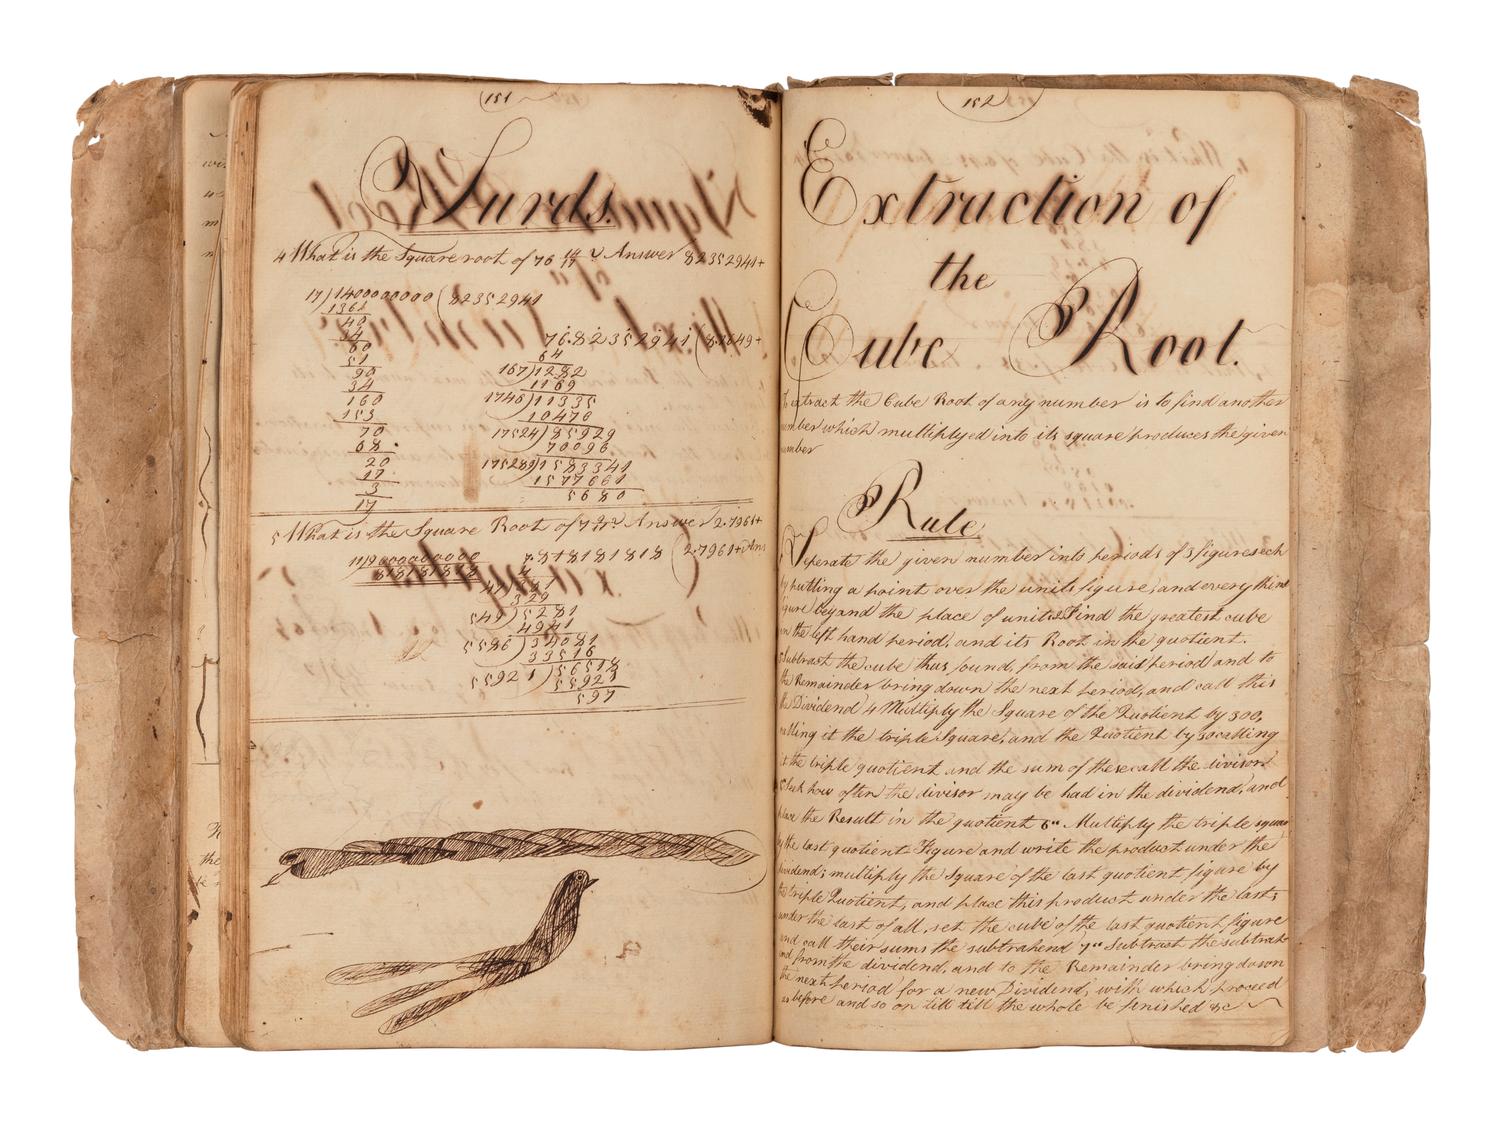 151
Surds.
4 What is the Square root of 76 14/17? Answer 82352941+
17)1400000000(82352941
1361
40
34
60
51
90
34
160
153
70
68
20
17
3
17
76.82352941(8.7649+
64
167)1282
1169
1746)11335
10476
17524)85929
70096
175289)1583341
1577601
5680
5 What is the Square Root of 7 9/11? Answer 2.7961+
11)9000000000
81818181
7.81818181(2.7961+Ans
4
47)381
329
549)5281
4941
5586)34081
33516
55921)56518
55921
597
152
Extraction of
the
Cube Root.
To extract the Cube Root of any number is to find another
number which multiplyed into its square produces the given
number
Rule
Seperate the given number into periods of 3 figures ech
by putting a point over the units figure, and every third
figure beyond the place of units Find the greatest cube
in the left hand period, and its Root in the quotient.
Subtract the cube thus found, from the said period and to
the Remainder bring down the next period, and call this
the Dividend 4 Multiply the Square of the Quotient by 300,
calling it the triple Square, and the Quotient by 30 calling
it the triple quotient and the sum of these call the divisor
5 Seek how often the divisor may be had in the dividend, and
place the Result in the quotient 6" Multiply the triple square
by the last quotient Figure and write the product under the
dividend; multiply the Square of the last quotient figure by
the triple Quotient, and place this product under the last;
under the last of all, set the cube of the last quotient figure
and call their sums the subtrahend 7" Subtract the subtrah
end from the dividend, and to the Remainder bring down
the next period for a new Dividend, with which proceed
as before and so on till till the whole be finished &c